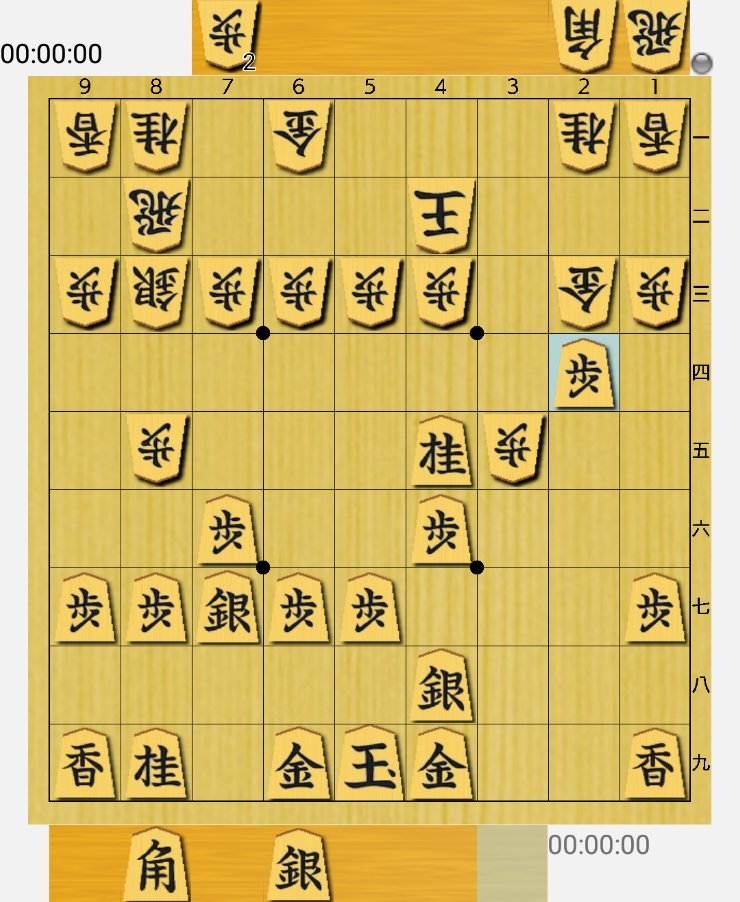 歩2 角 飛
00:00:00
9 8 7 6 5 4 3 2 1
香 桂 金 桂 香 一
飛 王 二
歩 銀 歩 歩 歩 歩 金 歩 三
歩 四
歩 桂 歩 五
歩 歩 六
歩 歩 銀 歩 歩 歩 七
銀 八
香 桂 金 玉 金 香 九
角 銀 00:00:00